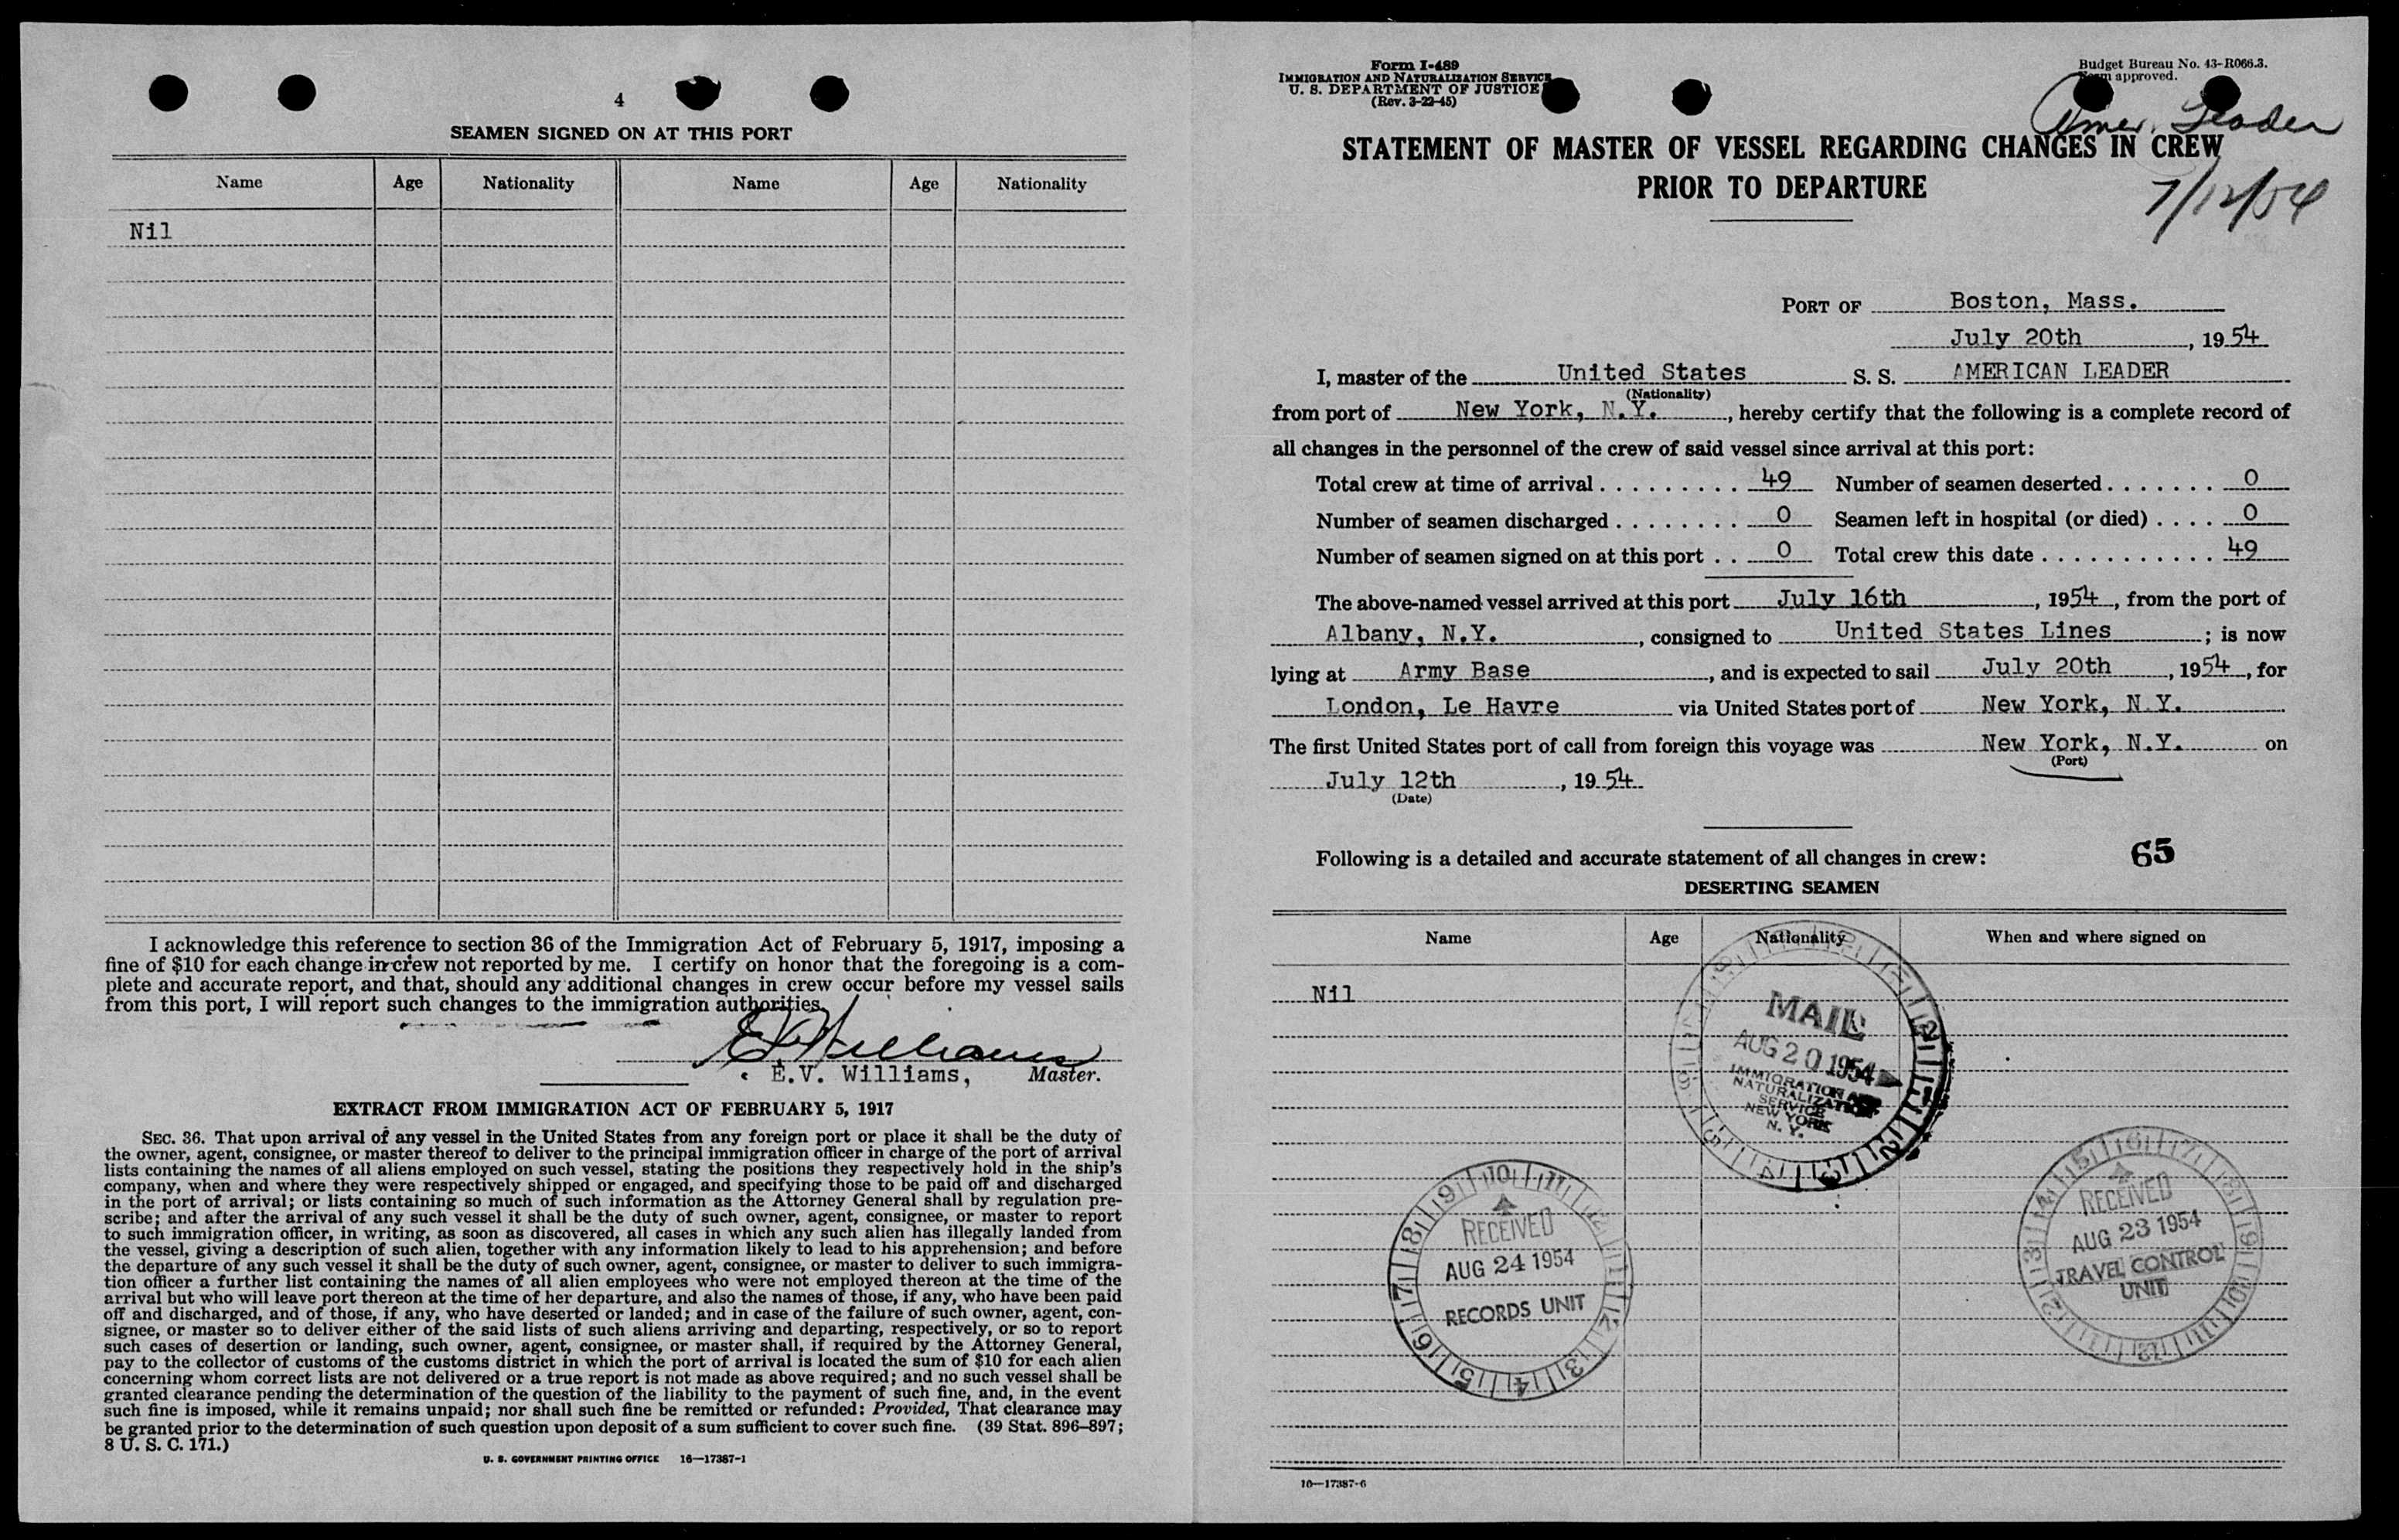 4
SEAMEN SIGNED ON AT THIS PORT
Name Age Nationality Name Age Nationality
Nil
I acknowledge this reference to section 36 of the Immigration Act of February 5, 1917, imposing a
fine of $10 for each change in crew not reported by me. I certify on honor that the foregoing is a com-
plete and accurate report, and that, should any additional changes in crew occur before my vessel sails
from this port, I will report such changes to the immigration authorities.
E.V. Williams
E.V. Williams, Master.
EXTRACT FROM IMMIGRATION ACT OF FEBRUARY 5, 1917
SEC. 36. That upon arrival of any vessel in the United States from any foreign port or place it shall be the duty of
the owner, agent, consignee, or master thereof to deliver to the principal immigration officer in charge of the port of arrival
lists containing the names of all aliens employed on such vessel, stating the positions they respectively hold in the ship's
company, when and where they were respectively shipped or engaged, and specifying those to be paid off and discharged
in the port of arrival; or lists containing so much of such information as the Attorney General shall by regulation pre-
scribe; and after the arrival of any such vessel it shall be the duty of such owner, agent, consignee, or master to report
to such immigration officer, in writing, as soon as discovered, all cases in which any such alien has illegally landed from
the vessel, giving a description of such alien, together with any information likely to lead to his apprehension; and before
the departure of any such vessel it shall be the duty of such owner, agent, consignee, or master to deliver to such immigra-
tion officer a further list containing the names of all alien employees who were not employed thereon at the time of the
arrival but who will leave port thereon at the time of her departure, and also the names of those, if any, who have been paid
off and discharged, and of those, if any, who have deserted or landed; and in case of the failure of such owner, agent, con-
signee, or master so to deliver either of the said lists of such aliens arriving and departing, respectively, or so to report
such cases of desertion or landing, such owner, agent, consignee, or master shall, if required by the Attorney General,
pay to the collector of customs of the customs district in which the port of arrival is located the sum of $10 for each alien
concerning whom correct lists are not delivered or a true report is not made as above required; and no such vessel shall be
granted clearance pending the determination of the question of the liability to the payment of such fine, and, in the event
such fine is imposed, while it remains unpaid; nor shall such fine be remitted or refunded: Provided, That clearance may
be granted prior to the determination of such question upon deposit of a sum sufficient to cover such fine. (39 Stat. 896–897;
8 U. S. C. 171.)
U. S. GOVERNMENT PRINTING OFFICE 16—17387-1
Form I-489
IMMIGRATION AND NATURALIZATION SERVICE
U. S. DEPARTMENT OF JUSTICE
(Rev. 3-22-45)
Budget Bureau No. 43-R066.3.
Form approved.
Amer. Leader
STATEMENT OF MASTER OF VESSEL REGARDING CHANGES IN CREW
PRIOR TO DEPARTURE
7/12/54
PORT OF Boston, Mass.
July 20th, 1954
I, master of the United States S. S. AMERICAN LEADER
(Nationality)
from port of New York, N.Y., hereby certify that the following is a complete record of
all changes in the personnel of the crew of said vessel since arrival at this port:
Total crew at time of arrival 49 Number of seamen deserted 0
Number of seamen discharged 0 Seamen left in hospital (or died) 0
Number of seamen signed on at this port 0 Total crew this date 49
The above-named vessel arrived at this port July 16th, 1954, from the port of
Albany, N.Y., consigned to United States Lines; is now
lying at Army Base, and is expected to sail July 20th, 1954, for
London, Le Havre via United States port of New York, N.Y.
The first United States port of call from foreign this voyage was New York, N.Y. on
(Port)
July 12th, 1954
(Date)
Following is a detailed and accurate statement of all changes in crew: 65
DESERTING SEAMEN
Name Age Nationality When and where signed on
Nil
MAIL
AUG 20 1954
IMMIGRATION AND
NATURALIZATION
SERVICE
NEW YORK
N. Y.
RECEIVED
AUG 24 1954
RECORDS UNIT
RECEIVED
AUG 23 1954
TRAVEL CONTROL
UNIT
16—17387-6